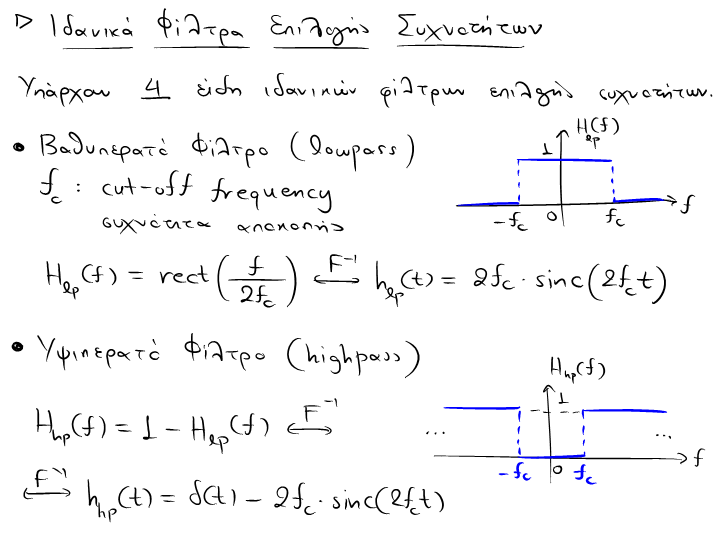 ▷ Ιδανικά Φίλτρα Επιλογής Συχνοτήτων
Υπάρχουν 4 είδη ιδανικών φίλτρων επιλογής συχνοτήτων.
• Βαθυπερατό Φίλτρο (lowpass)
f_c : cut-off frequency
συχνότητα αποκοπής
H_lp(f)
1
-f_c 0 f_c f
H_lp(f) = rect(f/2f_c) ⟷ F⁻¹ h_lp(t) = 2f_c · sinc(2f_c t)
• Υψιπερατό Φίλτρο (highpass)
H_hp(f)
1
... ...
-f_c 0 f_c f
H_hp(f) = 1 - H_lp(f) ⟷ F⁻¹
⟷ F⁻¹ h_hp(t) = δ(t) - 2f_c · sinc(2f_c t)